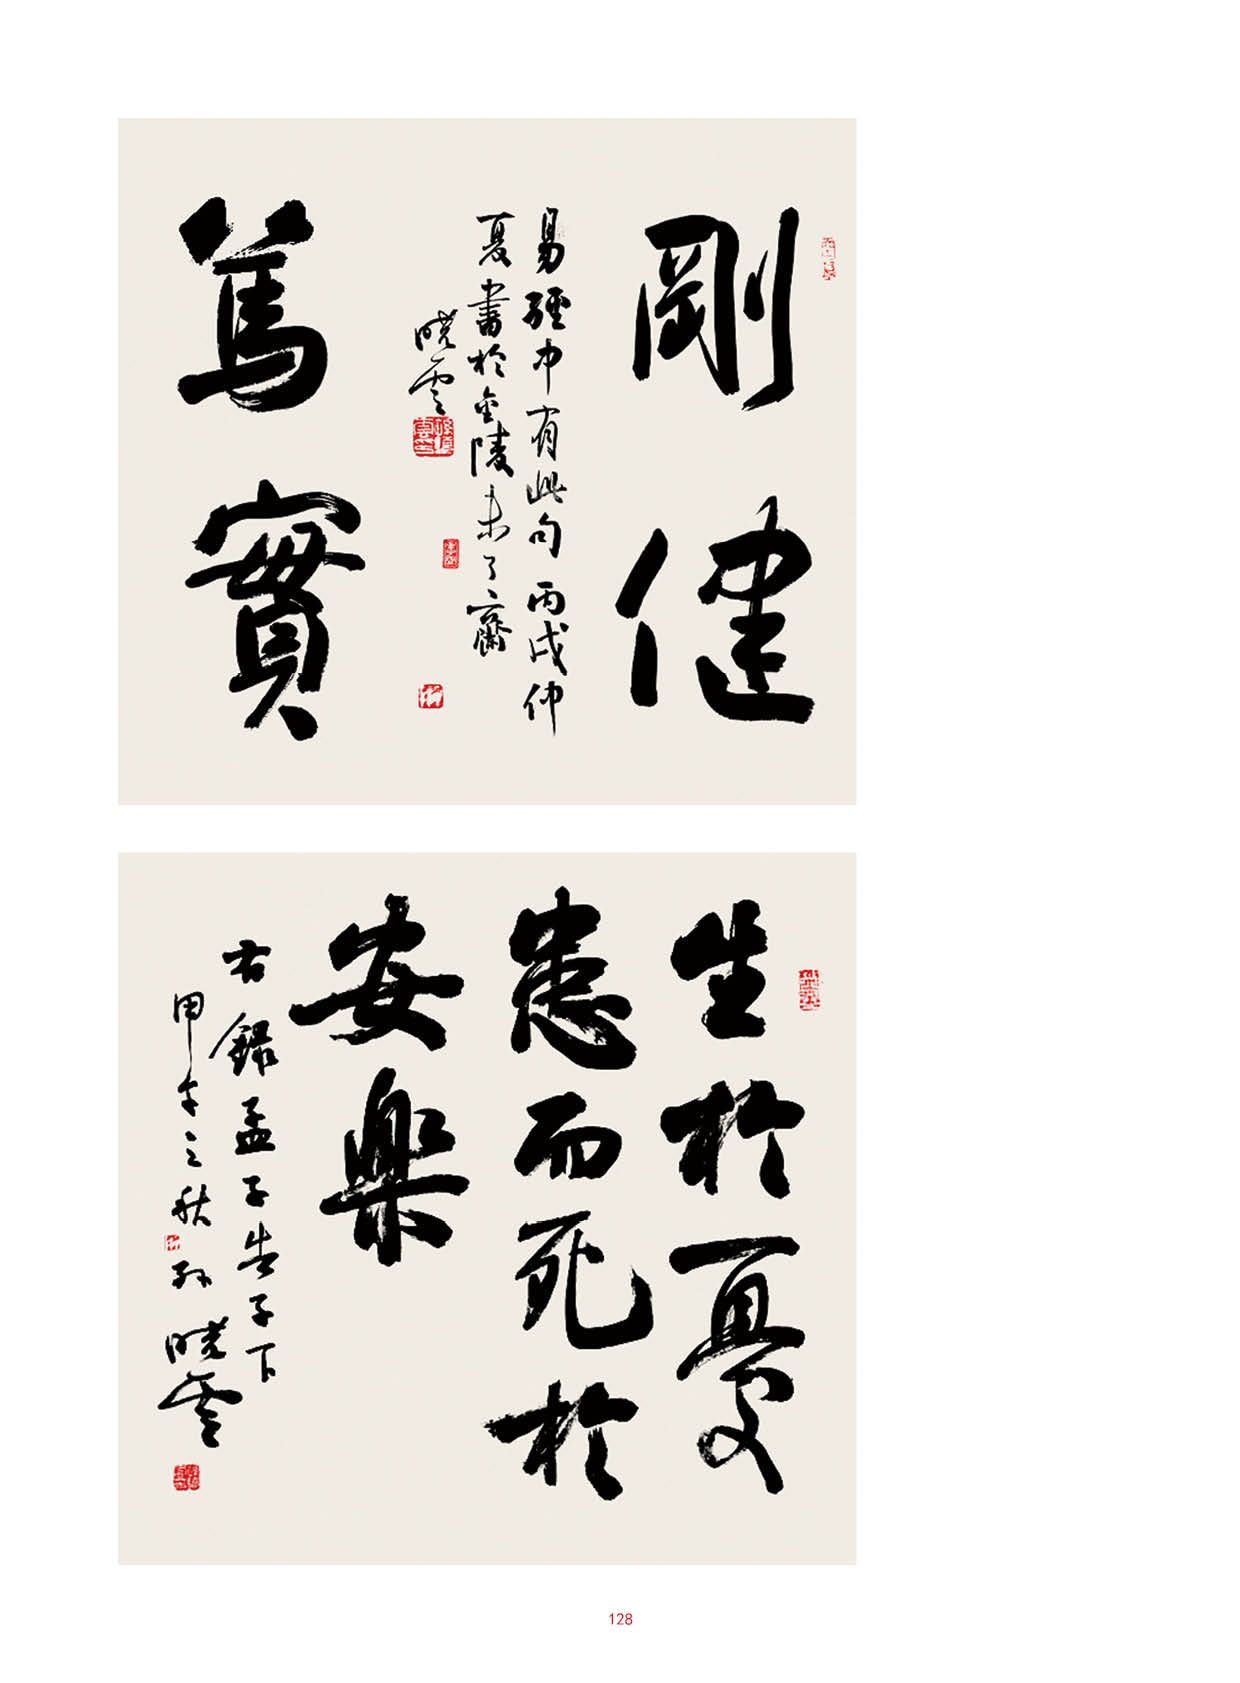 剛健
易經中有此句丙戌仲
夏書於金陵未了齋
曉雲
篤實
生於憂
患而死於
安樂
右錄孟子告子下
甲午之秋孫曉雲
128